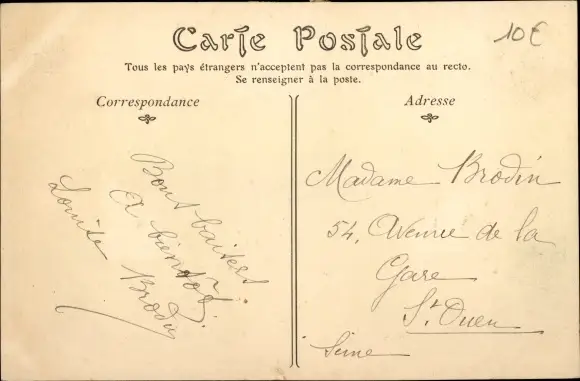 Carte Postale
10€
Tous les pays étrangers n'acceptent pas la correspondance au recto.
Se renseigner à la poste.
Correspondance
Bons baisers.
A bientôt.
Louise Brodin
Adresse
Madame Brodin
54, Avenue de la
Gare
St. Ouen
Seine